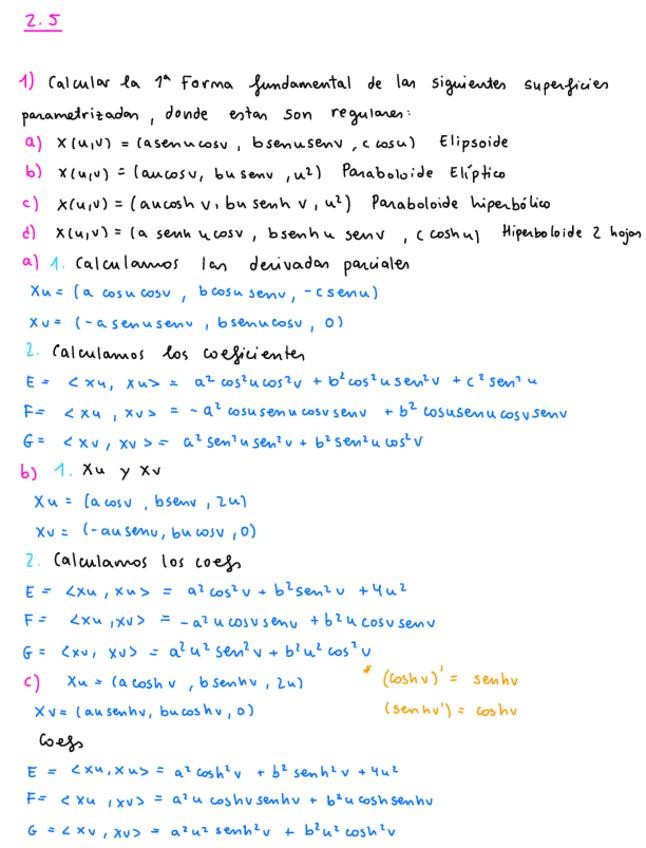 2.5
1) Calcular la 1ª Forma fundamental de las siguientes superficies
parametrizadas, donde estas son regulares:
a) x(u,v) = (a senu cosv, b senu senv, c cosu) Elipsoide
b) x(u,v) = (au cosv, bu senv, u²) Paraboloide Elíptico
c) x(u,v) = (au cosh v, bu senh v, u²) Paraboloide hiperbólico
d) x(u,v) = (a senh u cosv, b senh u senv, c cosh u) Hiperboloide 2 hojas
a) 1. Calculamos las derivadas parciales
Xu = (a cosu cosv, b cosu senv, -c senu)
Xv = (-a senu senv, b senu cosv, 0)
2. Calculamos los coeficientes
E = <xu, xu> = a² cos²u cos²v + b² cos²u sen²v + c² sen²u
F = <xu, xv> = -a² cosu senu cosv senv + b² cosu senu cosv senv
G = <xv, xv> = a² sen²u sen²v + b² sen²u cos²v
b) 1. Xu y Xv
Xu = (a cosv, b senv, 2u)
Xv = (-au senv, bu cosv, 0)
2. Calculamos los coefs
E = <xu, xu> = a² cos²v + b² sen²v + 4u²
F = <xu, xv> = -a² u cosv senv + b² u cosv senv
G = <xv, xv> = a² u² sen²v + b² u² cos²v
c) Xu = (a cosh v, b senhv, 2u) * (cosh v)' = senhv
Xv = (au senhv, bu coshv, 0) (senhv') = coshv
Coefs
E = <xu, xu> = a² cosh²v + b² senh²v + 4u²
F = <xu, xv> = a² u coshv senhv + b² u cosh senhv
G = <xv, xv> = a² u² senh²v + b² u² cosh²v